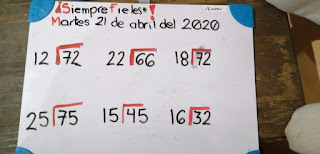 ¡Siempre fieles!
Martes 21 de abril del 2020
12 72 22 66 18 72
25 75 15 45 16 32